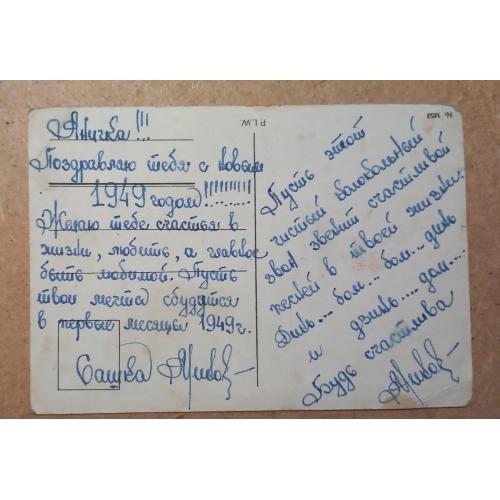 Яничка!!!
Поздравляю тебя с новым
1949 годом!!!!!!!!!!
Желаю тебе счастья в
жизни, любить, а главное
быть любимой. Пусть
твои мечты сбудутся
в первые месяцы 1949 г.
Сашка
P.L.W.
Nr. 1653
Пусть этот
чистый колокольный
звон звенит счастливой
песней в твоей жизни.
Динь... бом... бом... динь
и дзинь.... дон....
Будь счастлива